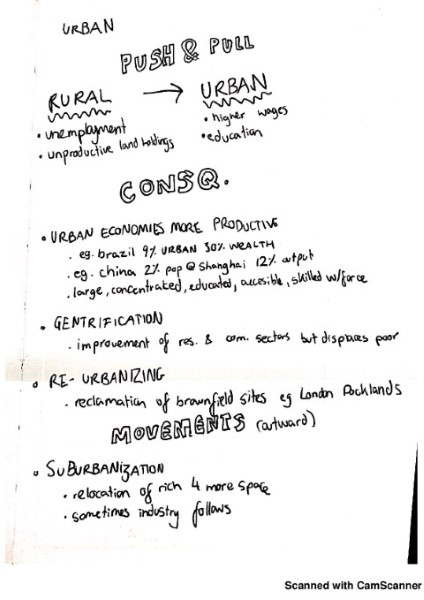 URBAN
PUSH & PULL
RURAL → URBAN
• unemployment
• unproductive land holdings
• higher wages
• education
CONSQ.
• URBAN ECONOMIES MORE PRODUCTIVE
• eg. brazil 9% URBAN 30% WEALTH
• eg. china 2% pop @ Shanghai 12% output
• large, concentrated, educated, accesible, skilled w/force
• GENTRIFICATION
• improvement of res. & com. sectors but displaces poor
• RE-URBANIZING
• reclamation of brownfield sites eg London Docklands
MOVEMENTS (outward)
• SUBURBANIZATION
• relocation of rich 4 more space
• sometimes industry follows
Scanned with CamScanner